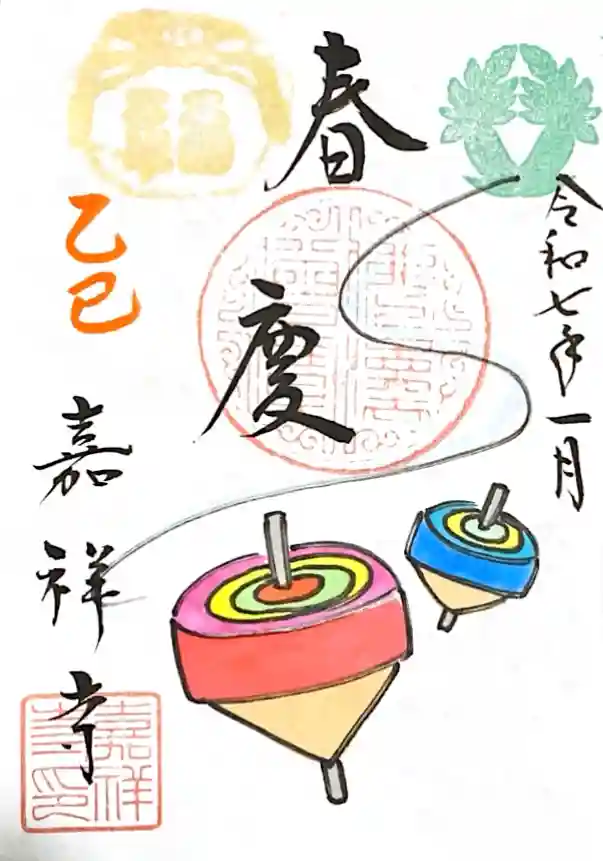 令和七年一月
春慶
乙巳
嘉祥寺
嘉祥
寺印